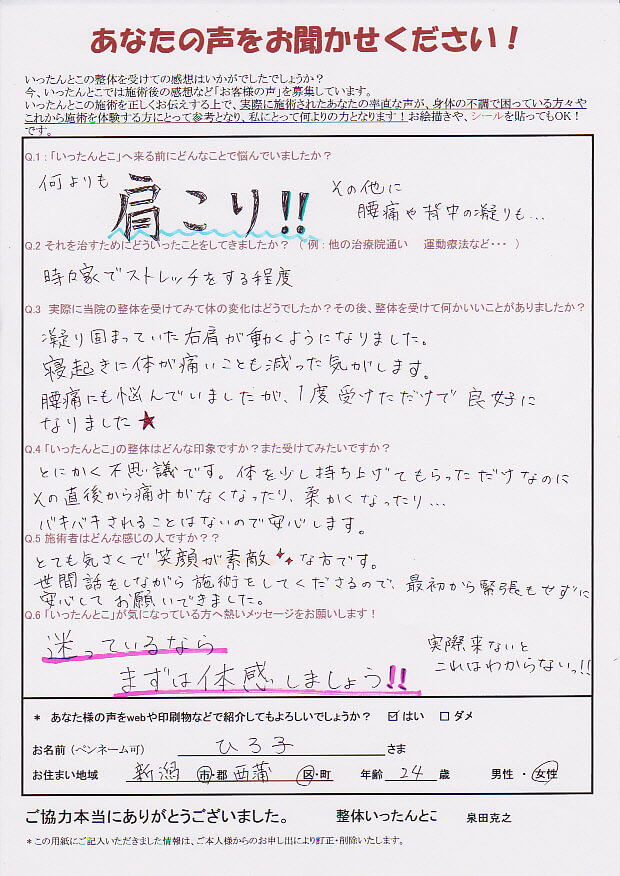 あなたの声をお聞かせください！
いったんとこの整体を受けての感想はいかがでしたでしょうか？
今、いったんとこでは施術後の感想など「お客様の声」を募集しています。
いったんとこの施術を正しくお伝えする上で、実際に施術されたあなたの率直な声が、身体の不調で困っている方々や
これから施術を体験する方にとって参考となり、私にとって何よりの力となります！お絵描きや、シールを貼ってもOK！
です。
Q.1：「いったんとこ」へ来る前にどんなことで悩んでいましたか？
何よりも 肩こり!!
その他に
腰痛や背中の凝りも…
Q.2 それを治すためにどういったことをしてきましたか？（例：他の治療院通い　運動療法など・・・ ）
時々家でストレッチをする程度
Q.3　実際に当院の整体を受けてみて体の変化はどうでしたか？その後、整体を受けて何かいいことがありましたか？
凝り固まっていた右肩が動くようになりました。
寝起きに体が痛いことも減った気がします。
腰痛にも悩んでいましたが、1度受けただけで良好に
なりました★
Q.4「いったんとこ」の整体はどんな印象ですか？また受けてみたいですか？
とにかく不思議です。体を少し持ち上げてもらっただけなのに
その直後から痛みがなくなったり、柔かくなったり…
バキバキされることはないので安心します。
Q.5 施術者はどんな感じの人ですか？？
とても気さくで笑顔が素敵な方です。
世間話をしながら施術をしてくださるので、最初から緊張もせずに
安心してお願いできました。
Q.6「いったんとこ」が気になっている方へ熱いメッセージをお願いします！
迷っているなら
まずは体感しましょう!!
実際来ないと
これはわからないっ!!
＊ あなた様の声をwebや印刷物などで紹介してもよろしいでしょうか？　☑はい　□ダメ
お名前（ペンネーム可）　ひろ子　さま
お住まい地域　新潟　市・郡　西蒲　区・町　年齢　24　歳　男性 ・ 女性
ご協力本当にありがとうございました。　整体いったんとこ　泉田克之
＊この用紙にご記入いただきました情報は、ご本人様からのお申し出により訂正・削除いたします。